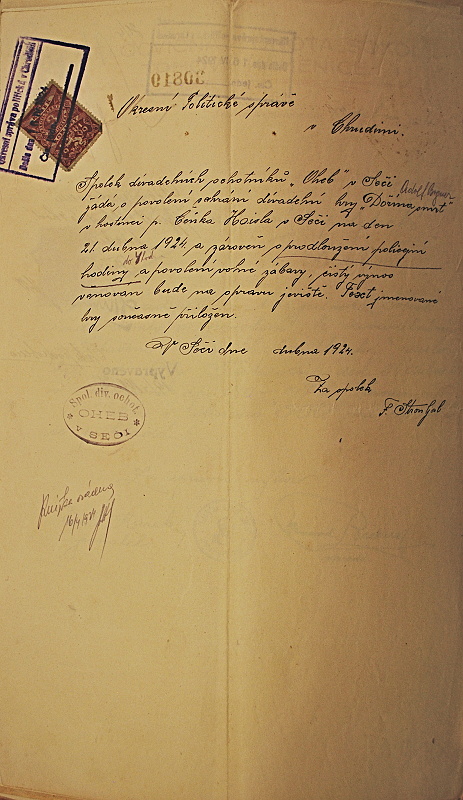 Okresní správa politická v Chrudimi
30819
Okresní Politické správě
v Chrudimi.
Spolek divadelních ochotníků „Oheb" v Seči
žádá o povolení sehrání divadelní hry „Dořina smrt"
v hostinci p. Čeňka Haisla v Seči na den
21. dubna 1924. a zároveň o prodloužení policejní
hodiny a povolení volné zábavy, čistý výnos
věnován bude na opravu jeviště. Text jmenované
hry současně přiložen.
V Seči dne dubna 1924.
Za spolek
Spol. div. ochot.
OHEB
v SEČI
16/4 1924